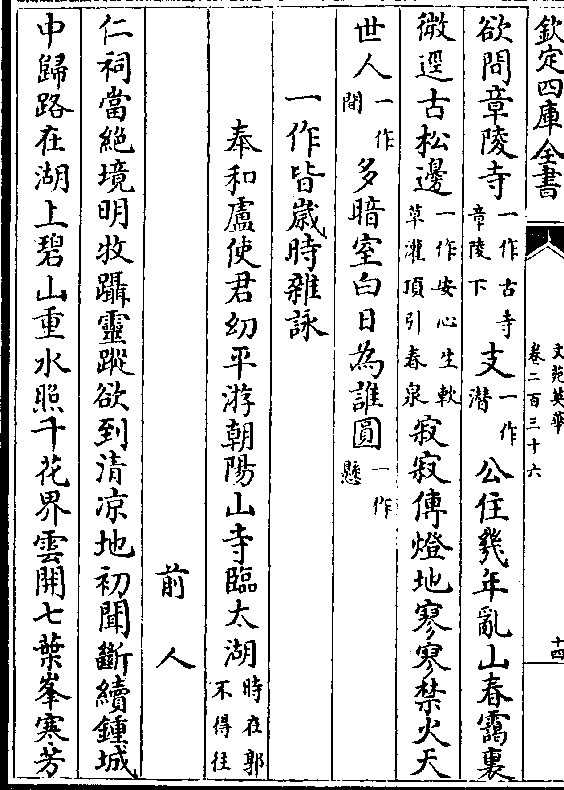 欽定四庫全書
文苑英華
卷二百三十六
十四
欲問章陵寺一作古寺章陵下支一作潛公住幾年亂山春靄裏
微逕古松邊一作安心生軟草灌頂引春泉寂寂傳燈地寥寥禁火天
世人一作間多暗室白日為誰圓一作懸
一作皆歲時雜詠
奉和盧使君幼平游朝陽山寺臨太湖時在郭不得往
前人
仁祠當絶境明牧躡靈蹤欲到清凉地初聞斷續鍾城
中歸路在湖上碧山重水照千花界雲開七葉峯寒芳